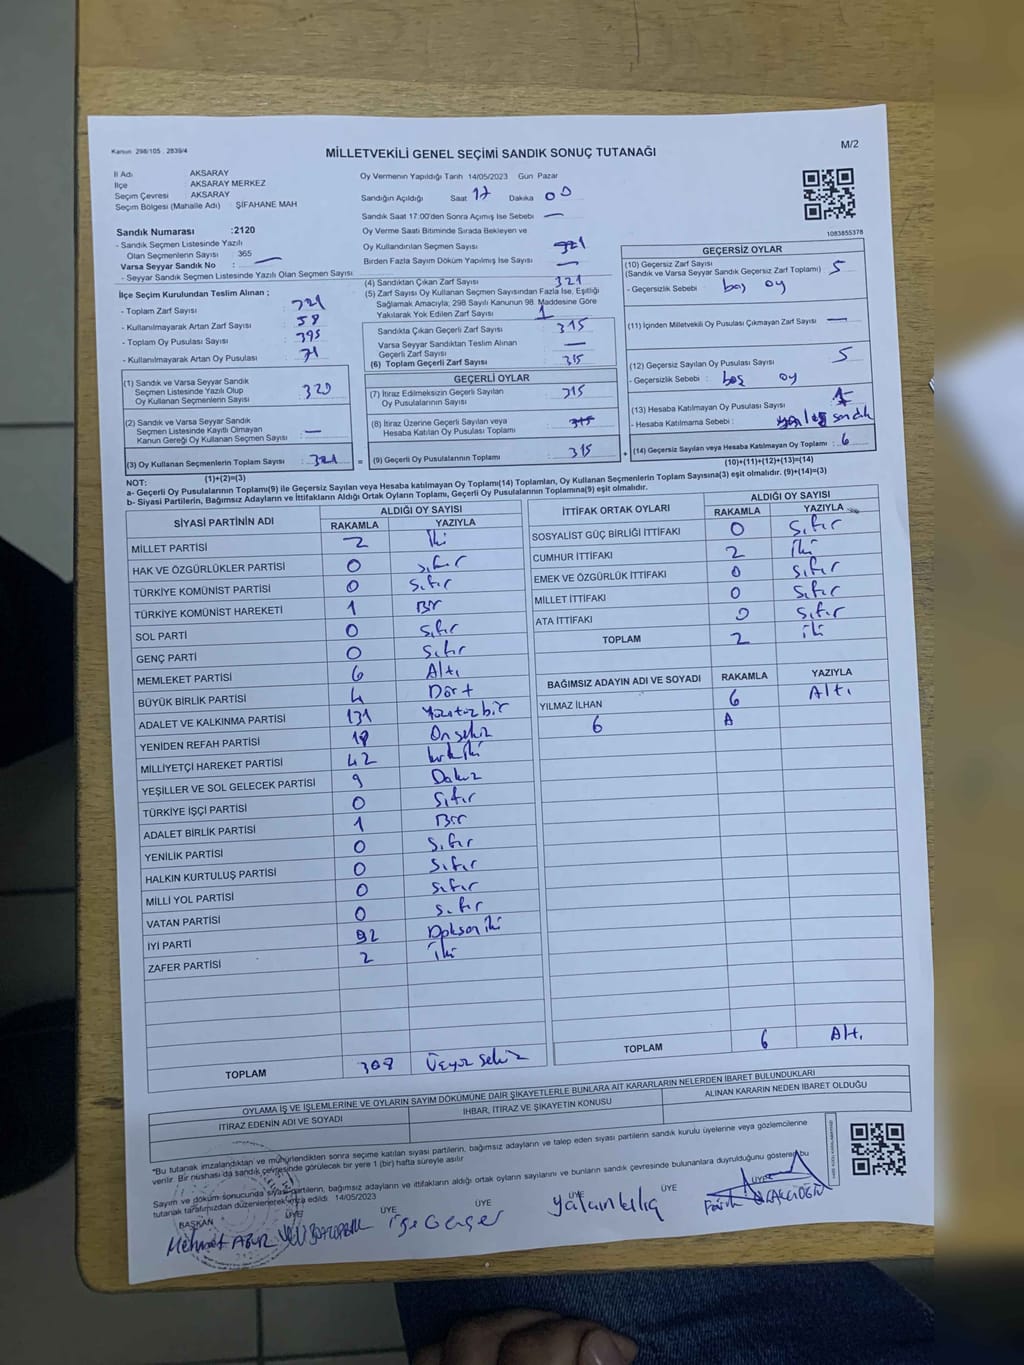 Kanun 298/105 : 2839/4
M/2
MİLLETVEKİLİ GENEL SEÇİMİ SANDIK SONUÇ TUTANAĞI
İl Adı : AKSARAY
İlçe : AKSARAY MERKEZ
Seçim Çevresi : AKSARAY
Seçim Bölgesi (Mahalle Adı) : ŞİFAHANE MAH
Sandık Numarası :2120
- Sandık Seçmen Listesinde Yazılı
Olan Seçmenlerin Sayısı : 365
Varsa Seyyar Sandık No : —
- Seyyar Sandık Seçmen Listesinde Yazılı Olan Seçmen Sayısı :
İlçe Seçim Kurulundan Teslim Alınan :
- Toplam Zarf Sayısı :
- Kullanılmayarak Artan Zarf Sayısı : 58
- Toplam Oy Pusulası Sayısı : 395
- Kullanılmayarak Artan Oy Pusulası : 71
(1) Sandık ve Varsa Seyyar Sandık
Seçmen Listesinde Yazılı Olup
Oy Kullanan Seçmenlerin Sayısı : 320
(2) Sandık ve Varsa Seyyar Sandık
Seçmen Listesinde Kayıtlı Olmayan
Kanun Gereği Oy Kullanan Seçmen Sayısı : —
(3) Oy Kullanan Seçmenlerin Toplam Sayısı : 321
(1)+(2)=(3)
Oy Vermenin Yapıldığı Tarih 14/05/2023 Gün Pazar
Sandığın Açıldığı Saat 17 Dakika 00
Sandık Saat 17:00'den Sonra Açımış İse Sebebi : —
Oy Verme Saati Bitiminde Sırada Bekleyen ve
Oy Kullandırılan Seçmen Sayısı :
Birden Fazla Sayım Döküm Yapılmış İse Sayısı : —
(4) Sandıktan Çıkan Zarf Sayısı : 321
(5) Zarf Sayısı Oy Kullanan Seçmen Sayısından Fazla İse, Eşitliği
Sağlamak Amacıyla; 298 Sayılı Kanunun 98. Maddesine Göre
Yakılarak Yok Edilen Zarf Sayısı : 1
Sandıkta Çıkan Geçerli Zarf Sayısı : 315
Varsa Seyyar Sandıktan Teslim Alınan
Geçerli Zarf Sayısı : —
(6) Toplam Geçerli Zarf Sayısı : 315
GEÇERLİ OYLAR
(7) İtiraz Edilmeksizin Geçerli Sayılan
Oy Pusulalarının Sayısı : 315
(8) İtiraz Üzerine Geçerli Sayılan veya
Hesaba Katılan Oy Pusulası Toplamı : 315
= (9) Geçerli Oy Pusulalarının Toplamı : 315
1083855378
GEÇERSİZ OYLAR
(10) Geçersiz Zarf Sayısı
(Sandık ve Varsa Seyyar Sandık Geçersiz Zarf Toplamı) : 5
- Geçersizlik Sebebi : boş oy
(11) İçinden Milletvekili Oy Pusulası Çıkmayan Zarf Sayısı : —
(12) Geçersiz Sayılan Oy Pusulası Sayısı : 5
- Geçersizlik Sebebi : boş oy
(13) Hesaba Katılmayan Oy Pusulası Sayısı : 1
- Hesaba Katılmama Sebebi : sandık
+ (14) Geçersiz Sayılan veya Hesaba Katılmayan Oy Toplamı : 6
(10)+(11)+(12)+(13)=(14)
NOT:
a- Geçerli Oy Pusulalarının Toplamı(9) ile Geçersiz Sayılan veya Hesaba katılmayan Oy Toplamı(14) Toplamları, Oy Kullanan Seçmenlerin Toplam Sayısına(3) eşit olmalıdır. (9)+(14)=(3)
b- Siyasi Partilerin, Bağımsız Adayların ve İttifakların Aldığı Ortak Oyların Toplamı, Geçerli Oy Pusulalarının Toplamına(9) eşit olmalıdır.
SİYASİ PARTİNİN ADI ALDIĞI OY SAYISI
RAKAMLA YAZIYLA
MİLLET PARTİSİ 2 İki
HAK VE ÖZGÜRLÜKLER PARTİSİ 0 Sıfır
TÜRKİYE KOMÜNİST PARTİSİ 0 Sıfır
TÜRKİYE KOMÜNİST HAREKETİ 1 Bir
SOL PARTİ 0 Sıfır
GENÇ PARTİ 0 Sıfır
MEMLEKET PARTİSİ 6 Altı
BÜYÜK BİRLİK PARTİSİ 4 Dört
ADALET VE KALKINMA PARTİSİ 131 Yüzotuzbir
YENİDEN REFAH PARTİSİ 18 Onsekiz
MİLLİYETÇİ HAREKET PARTİSİ 42 kırkiki
YEŞİLLER VE SOL GELECEK PARTİSİ 9 Dokuz
TÜRKİYE İŞÇİ PARTİSİ 0 Sıfır
ADALET BİRLİK PARTİSİ 1 Bir
YENİLİK PARTİSİ 0 Sıfır
HALKIN KURTULUŞ PARTİSİ 0 Sıfır
MİLLİ YOL PARTİSİ 0 Sıfır
VATAN PARTİSİ 0 Sıfır
İYİ PARTİ 92 Doksan iki
ZAFER PARTİSİ 2 İki
TOPLAM 308 Üçyüz Sekiz
İTTİFAK ORTAK OYLARI ALDIĞI OY SAYISI
RAKAMLA YAZIYLA
SOSYALİST GÜÇ BİRLİĞİ İTTİFAKI 0 Sıfır
CUMHUR İTTİFAKI 2 İki
EMEK VE ÖZGÜRLÜK İTTİFAKI 0 Sıfır
MİLLET İTTİFAKI 0 Sıfır
ATA İTTİFAKI 0 Sıfır
TOPLAM 2 iki
BAĞIMSIZ ADAYIN ADI VE SOYADI RAKAMLA YAZIYLA
YILMAZ İLHAN 6 Altı
6 A
TOPLAM 6 Altı
OYLAMA İŞ VE İŞLEMLERİNE VE OYLARIN SAYIM DÖKÜMÜNE DAİR ŞİKAYETLERLE BUNLARA AİT KARARLARIN NELERDEN İBARET BULUNDUKLARI
İTİRAZ EDENİN ADI VE SOYADI İHBAR, İTİRAZ VE ŞİKAYETİN KONUSU ALINAN KARARIN NEDEN İBARET OLDUĞU
"Bu tutanak imzalandıktan ve mühürlendikten sonra seçime katılan siyasi partilerin, bağımsız adayların ve talep eden siyasi partilerin sandık kurulu üyelerine veya gözlemcilerine
verilir. Bir nüshası da sandık çevresinde görülecek bir yere 1 (bir) hafta süreyle asılır
Sayım ve döküm sonucunda siyasi partilerin, bağımsız adayların ve ittifakların aldığı ortak oyların sayılarını ve bunların sandık çevresinde bulunanlara duyrulduğunu gösteren bu
tutanak tarafımızdan düzenlenerek imza edildi. 14/05/2023
BAŞKAN ÜYE ÜYE ÜYE ÜYE ÜYE ÜYE
Mehmet